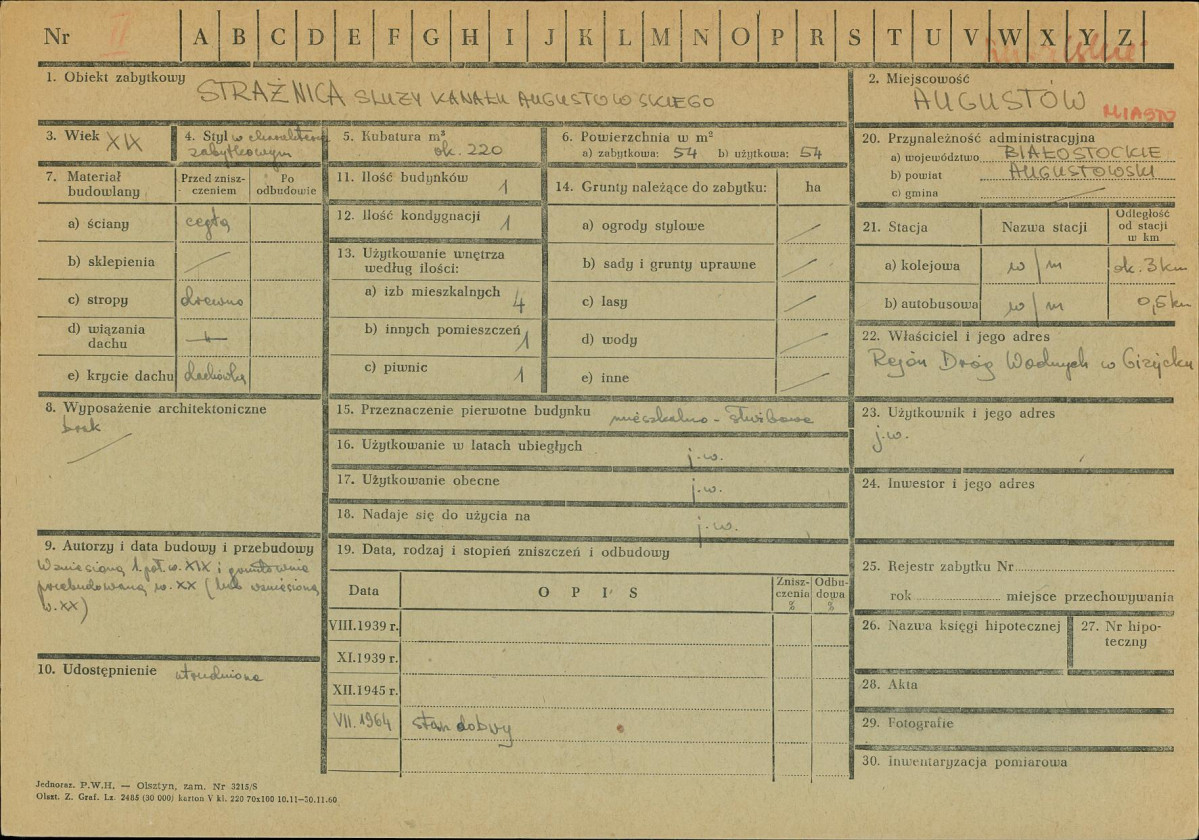 Nr II A B C D E F G H I J K L M N O P R S T U V W X Y Z
1. Obiekt zabytkowy STRAŻNICA SLUZY KANAŁU AUGUSTOWSKIEGO
2. Miejscowość
AUGUSTÓW MIASTO
3. Wiek XIX
4. Styl w charakterze
zabytkowym
5. Kubatura m³
ok. 220
6. Powierzchnia w m²
a) zabytkowa: 54 b) użytkowa: 54
20. Przynależność administracyjna
a) województwo BIAŁOSTOCKIE
b) powiat AUGUSTOWSKI
c) gmina
7. Materiał
budowlany
Przed znisz-
czeniem
Po
odbudowie
a) ściany cegła
b) sklepienia
c) stropy drewno
d) wiązania
dachu
e) krycie dachu dachówka
11. Ilość budynków 1
12. Ilość kondygnacji 1
13. Użytkowanie wnętrza
według ilości:
a) izb mieszkalnych 4
b) innych pomieszczeń 1
c) piwnic 1
14. Grunty należące do zabytku: ha
a) ogrody stylowe
b) sady i grunty uprawne
c) lasy
d) wody
e) inne
21. Stacja Nazwa stacji
Odległość
od stacji
w km
a) kolejowa w/m ok. 3 km
b) autobusowa w/m 0,5 km
22. Właściciel i jego adres
Rejon Dróg Wodnych w Giżycku
8. Wyposażenie architektoniczne
brak
15. Przeznaczenie pierwotne budynku mieszkalno - służbowe
16. Użytkowanie w latach ubiegłych j.w.
17. Użytkowanie obecne j.w.
18. Nadaje się do użycia na j.w.
23. Użytkownik i jego adres
j.w.
24. Inwestor i jego adres
9. Autorzy i data budowy i przebudowy
Wzniesiona 1 poł. w. XIX i gruntownie
przebudowana w. XX (lub wzniesiona
w. XX)
10. Udostępnienie utrudnione
19. Data, rodzaj i stopień zniszczeń i odbudowy
Data OPIS
Znisz-
czenia
%
Odbu-
dowa
%
VIII.1939 r.
XI.1939 r.
XII.1945 r.
VII.1964 stan dobry
25. Rejestr zabytku Nr
rok miejsce przechowywania
26. Nazwa księgi hipotecznej
27. Nr hipo-
teczny
28. Akta
29. Fotografie
30. Inwentaryzacja pomiarowa
Jednoraz. P.W.H. — Olsztyn, zam. Nr 3215/S
Olszt. Z. Graf. Lz. 2485 (30 000) karton V kl. 220 70x100 10.11—30.11.60